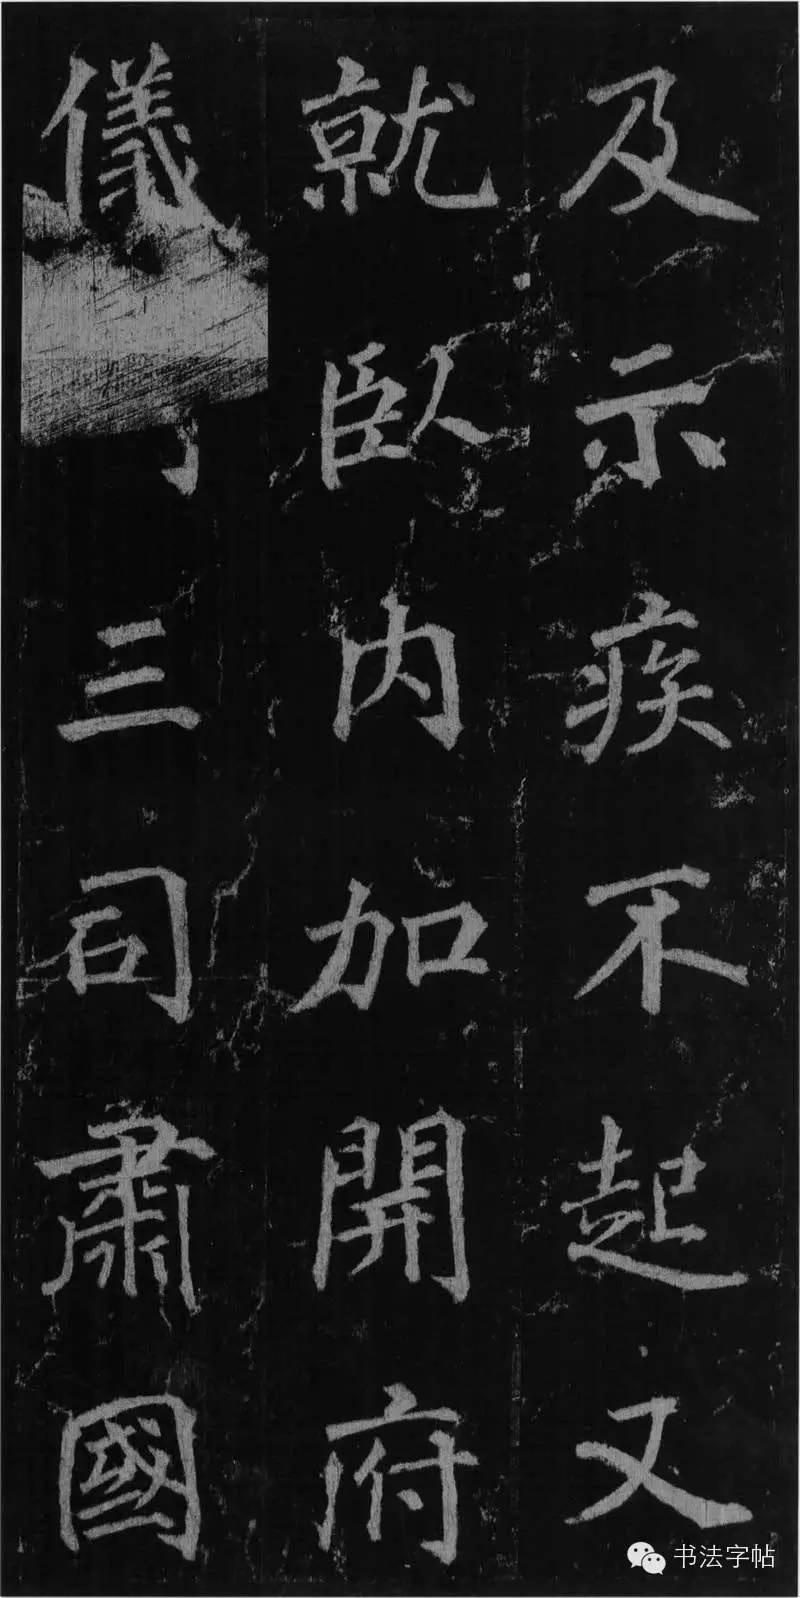 及示疾不起又
就臥内加開府
儀三司肅國
书法字帖